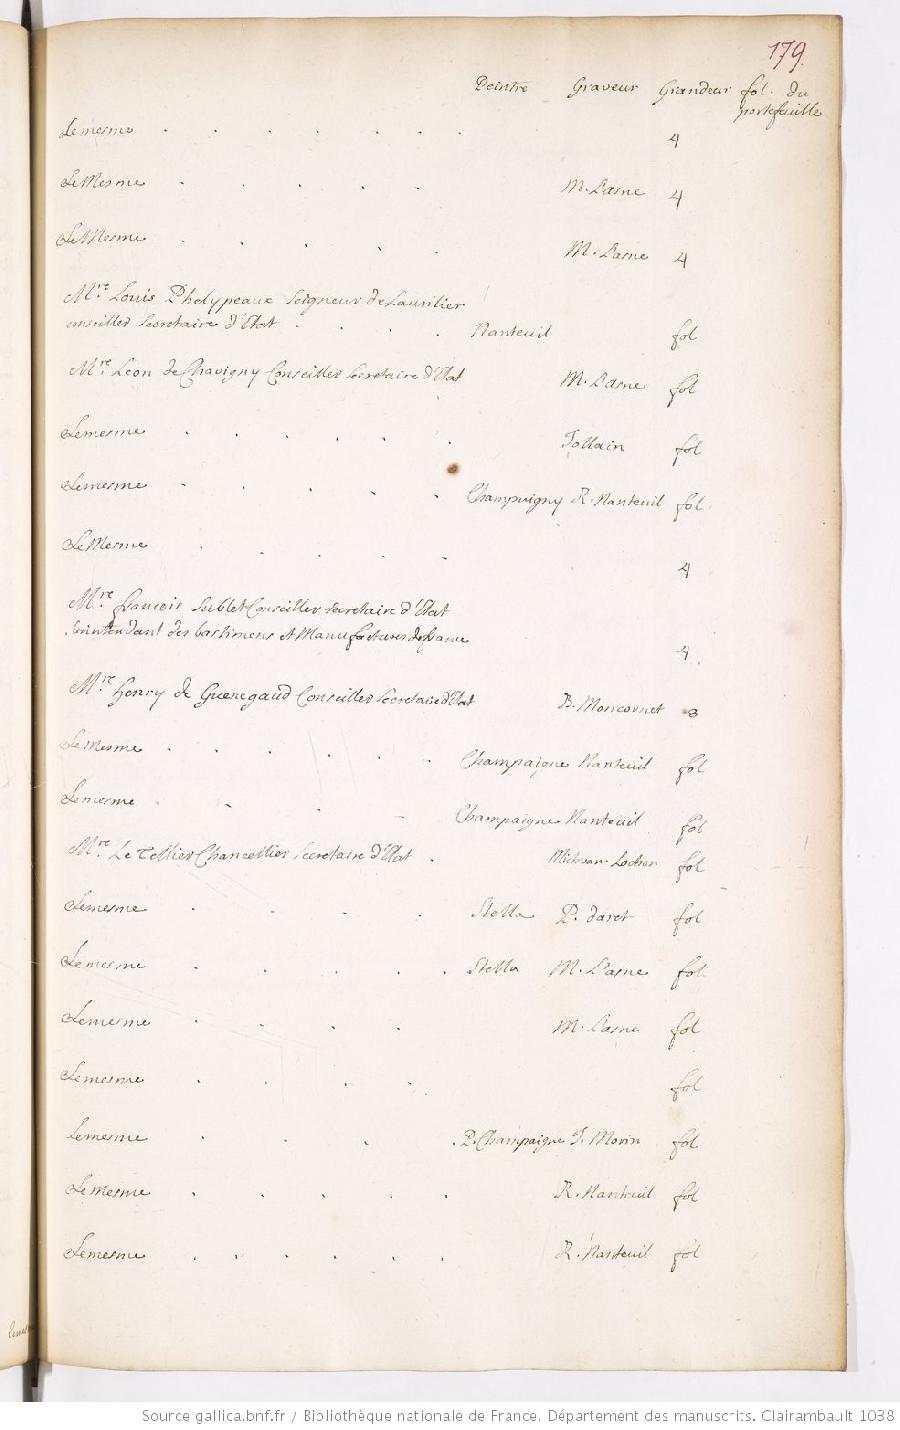 179.
Peintre Graveur Grandeur fol. du
portefeuille
Lemesme . . . . . . . 4
Le Mesme . . . . . M. Lasne 4
Le Mesme . . . . . M. Lasne 4
Mre. Louis Phelypeaux Seigneur de Lavrilier
Conseiller Secretaire d'Etat . . . . Nanteuil fol
Mre. Leon de Chavigny Conseiller Secretaire d'Etat . M. Lasne fol
Lemesme . . . . . . Jollain fol
Lemesme . . . . . Champvigny R. Nanteuil fol.
Le Mesme . . . . . 4
Mre. françois Sublet Conseiller Secretaire d'Etat
Surintendant des bastimens et Manufactures de france 4.
Mre. henry de Guenegaud Conseiller Secretaire d'Etat B. Moncornet 8
Le Mesme . . . . . . Champaigne Nanteuil fol
Lemesme . . . . Champaigne Nanteuil fol
Mre. Le Tellier Chancellier Secretaire d'Etat . Lochon fol
Lemesme . . . . . Stella P. daret fol
Lemesme . . . . . . Stella M. Lasne fol.
Lemesme . . . . M. Lasne fol
Lemesme . . . . fol
Lemesme . . . . P. Champaigne J. Morin fol
Le Mesme . . . . . R. Nanteuil fol
Lemesme . . . . . . R. Nanteuil fol
Source gallica.bnf.fr / Bibliothèque nationale de France. Département des manuscrits. Clairambault 1038